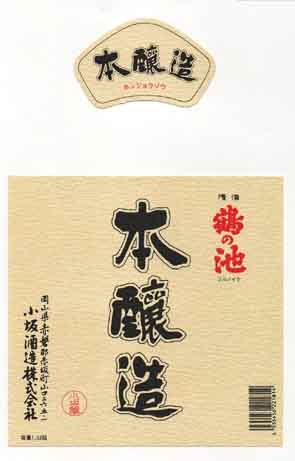 本醸造
ホンジョウゾウ
清酒
鶴の池
ツルノイケ
本醸造
岡山県赤磐郡赤坂町山口
小坂酒造株式会社